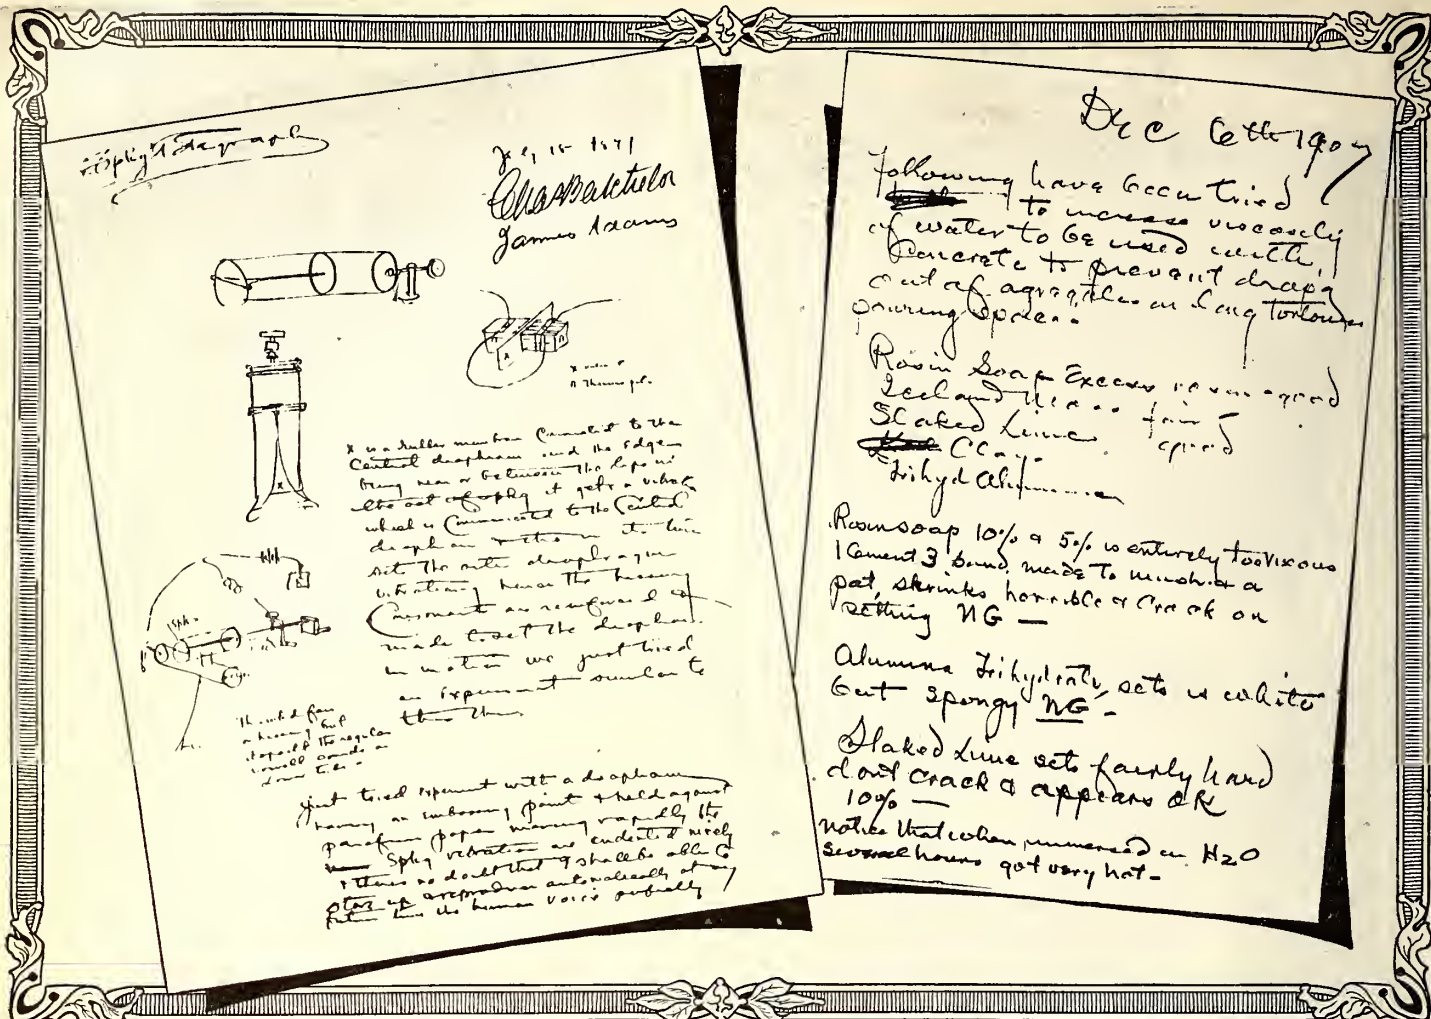 Spkg Telegraph
July 18 1877
Chas Batchelor
James Adams
X is a rubber membrane connected to the
Central diaphram and the edge
being near or between the lips in
the act of spkg it gets a vibration
which is communicated to the Central
diaphram & this in its turn
sets the outer diaphragm
vibrating hence the hissing
Consonants are reinforced &
made to set the diaphram
in motion we just tried
an Experiment similar to
this thing
just tried expment with a diapham
having an embossing point & held against
parafin paper moving rapidly the
Spkg vibrations are indented nicely
& theres no doubt that I shall be able to
store up & reproduce automatically at any
future time the human voice perfectly
Dec 6th 1907
Following have been tried
to increase viscosity
of water to be used with
Concrete to prevent dropg
out of agregates on long tortous
pouring
Rosin Soap Excess good
Iceland Moss fair
Slaked Lime good
Clay
Trihyd Alumina
Rosin soap 10% & 5% is entirely too viscous
1 Cement 3 sand, made to mush & a
pat, shrinks horrible & Crack on
setting NG —
Alumina Trihydrate, sets is white
but spongy NG -
Slaked Lime sets fairly hard
dont crack & appears OK
10% —
notice that when immersed in H2O
several hours got very hot -